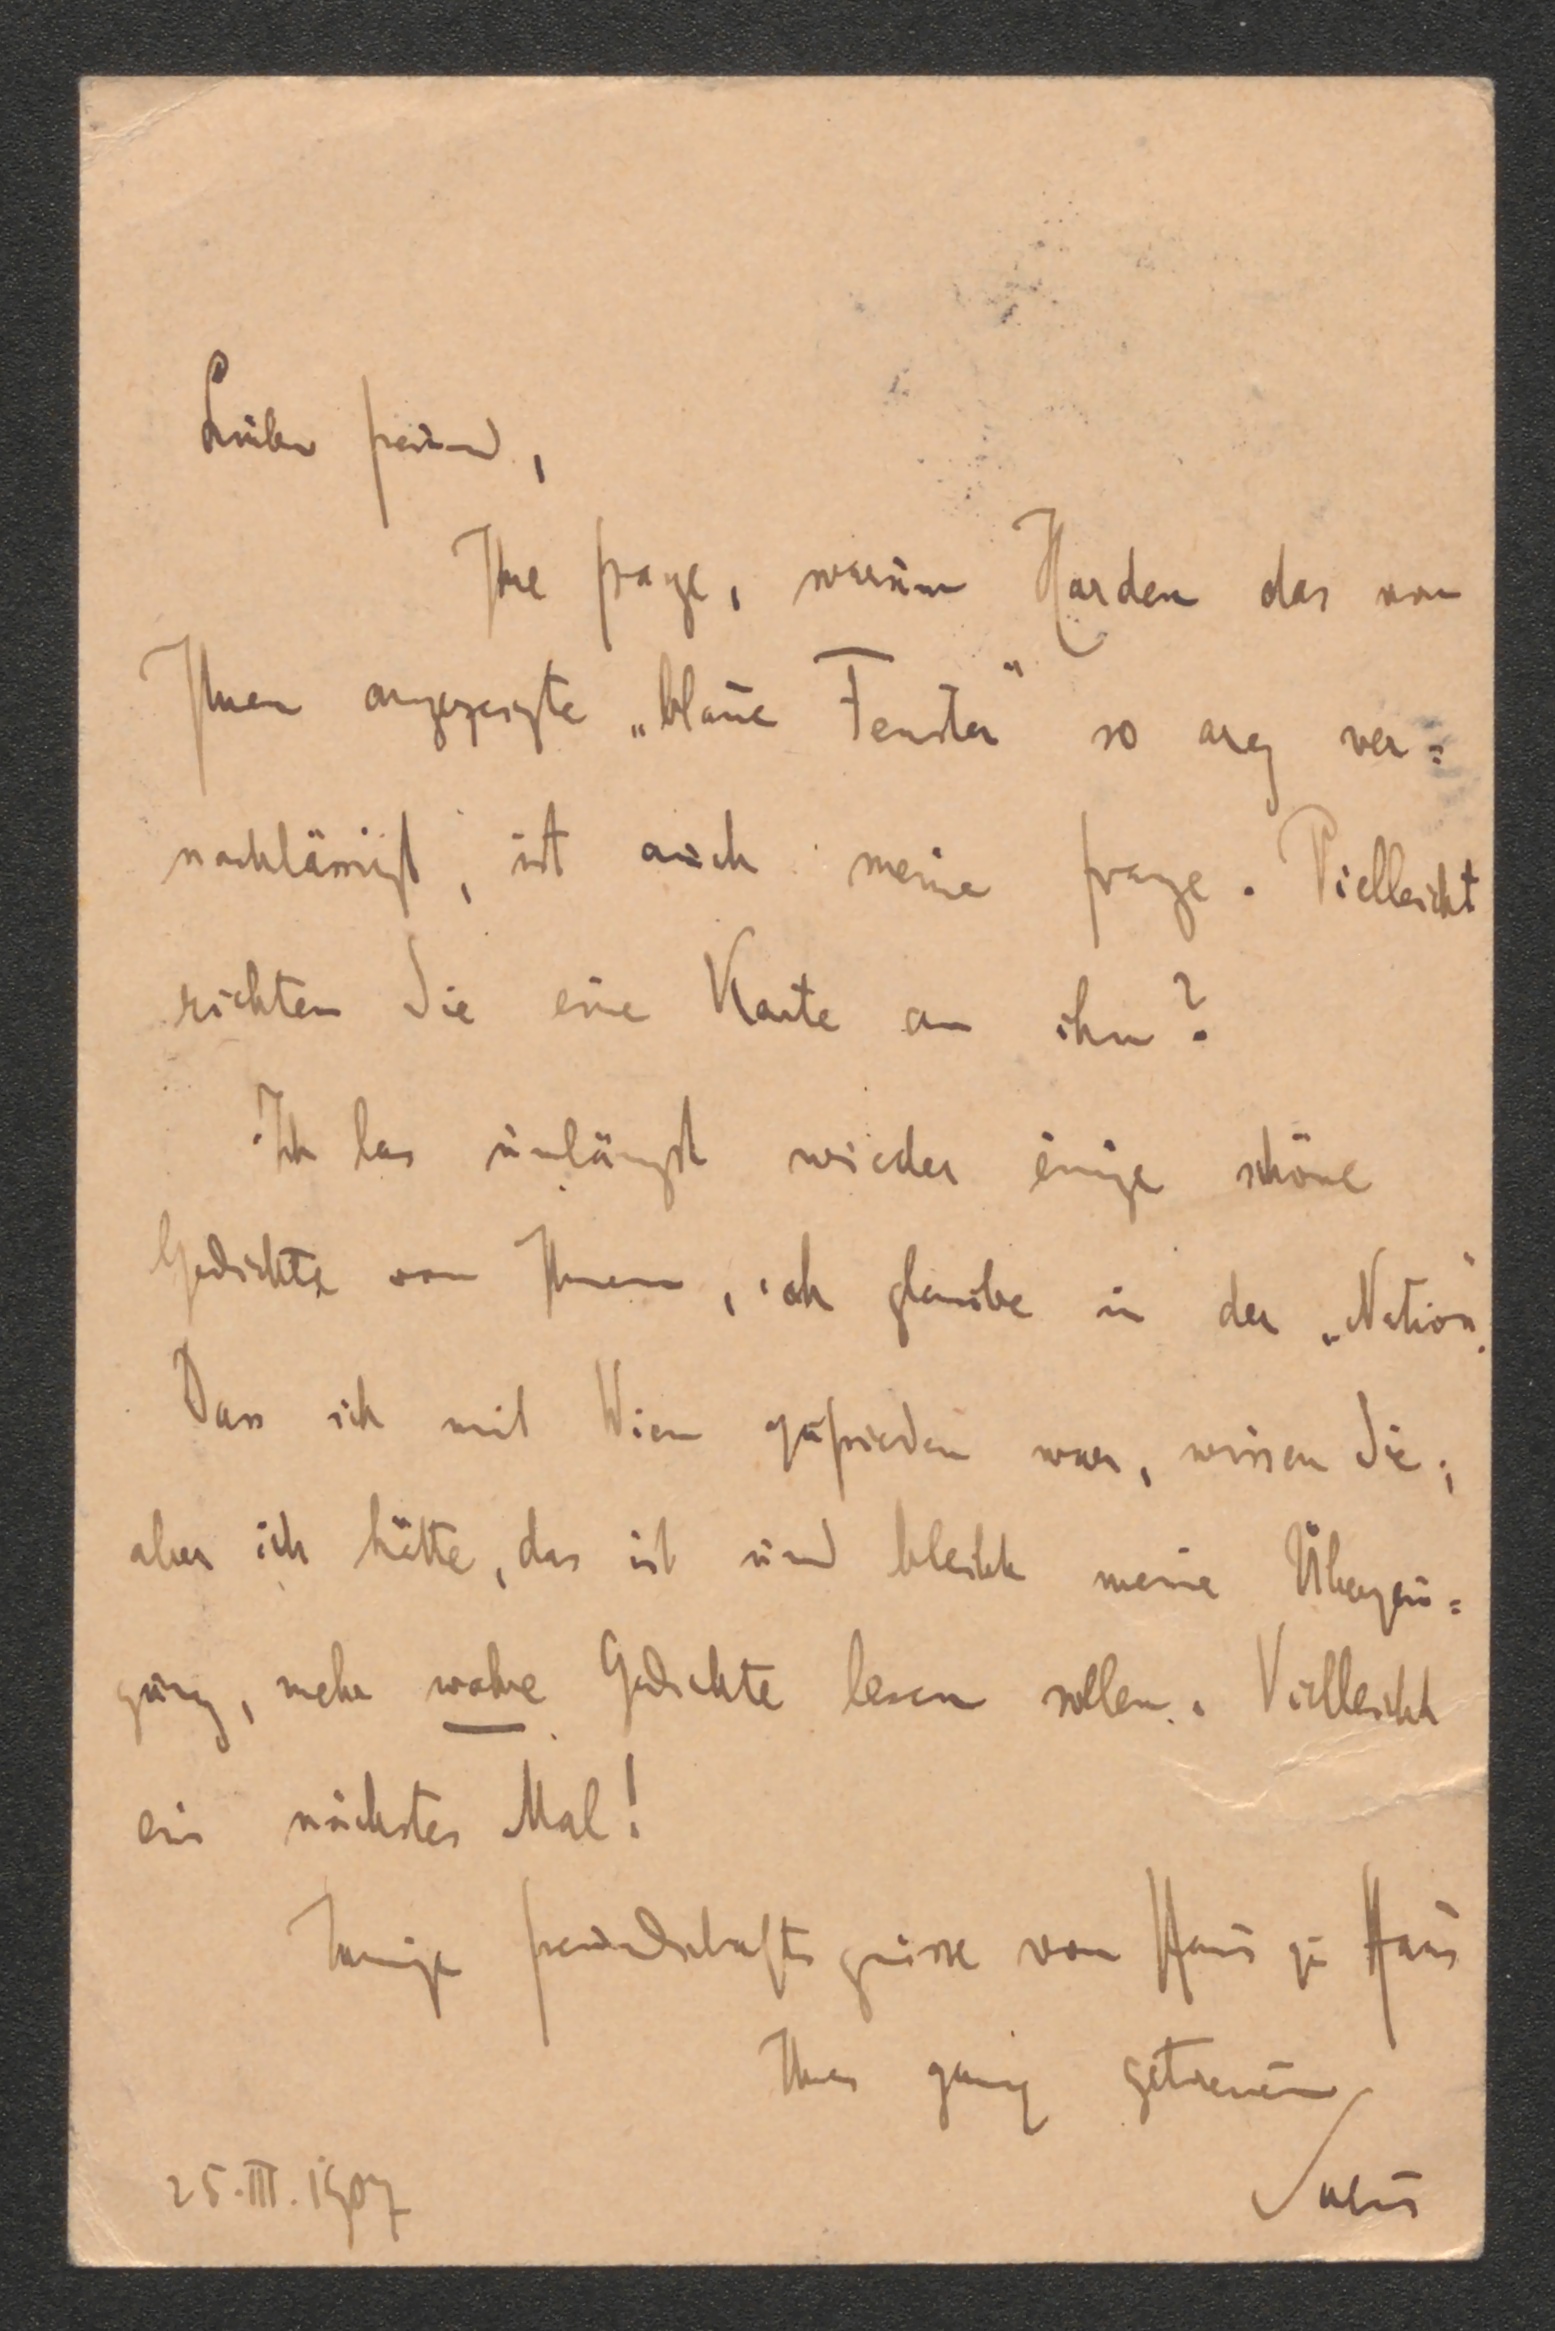 Lieber Freund,
Ihre Frage, warum Harden das von
Ihnen angezeigte „blaue Fenster“ so arg ver=
nachlässigt, ist auch meine Frage. Vielleicht
richten Sie eine Karte an ihn?
Ich las unlängst wieder einige schöne
Gedichte von Ihnen, ich glaube in der „Nation“.
Dass ich mit Wien zufrieden war, wissen Sie;
aber ich hätte, das ist und bleibt meine Überzeu=
gung, mehr wahre Gedichte lesen sollen. Vielleicht
ein nächstes Mal!
Innige Freundschaftsgrüsse von Haus zu Haus
Ihres ganz getreuen
Salus
25.III.1907